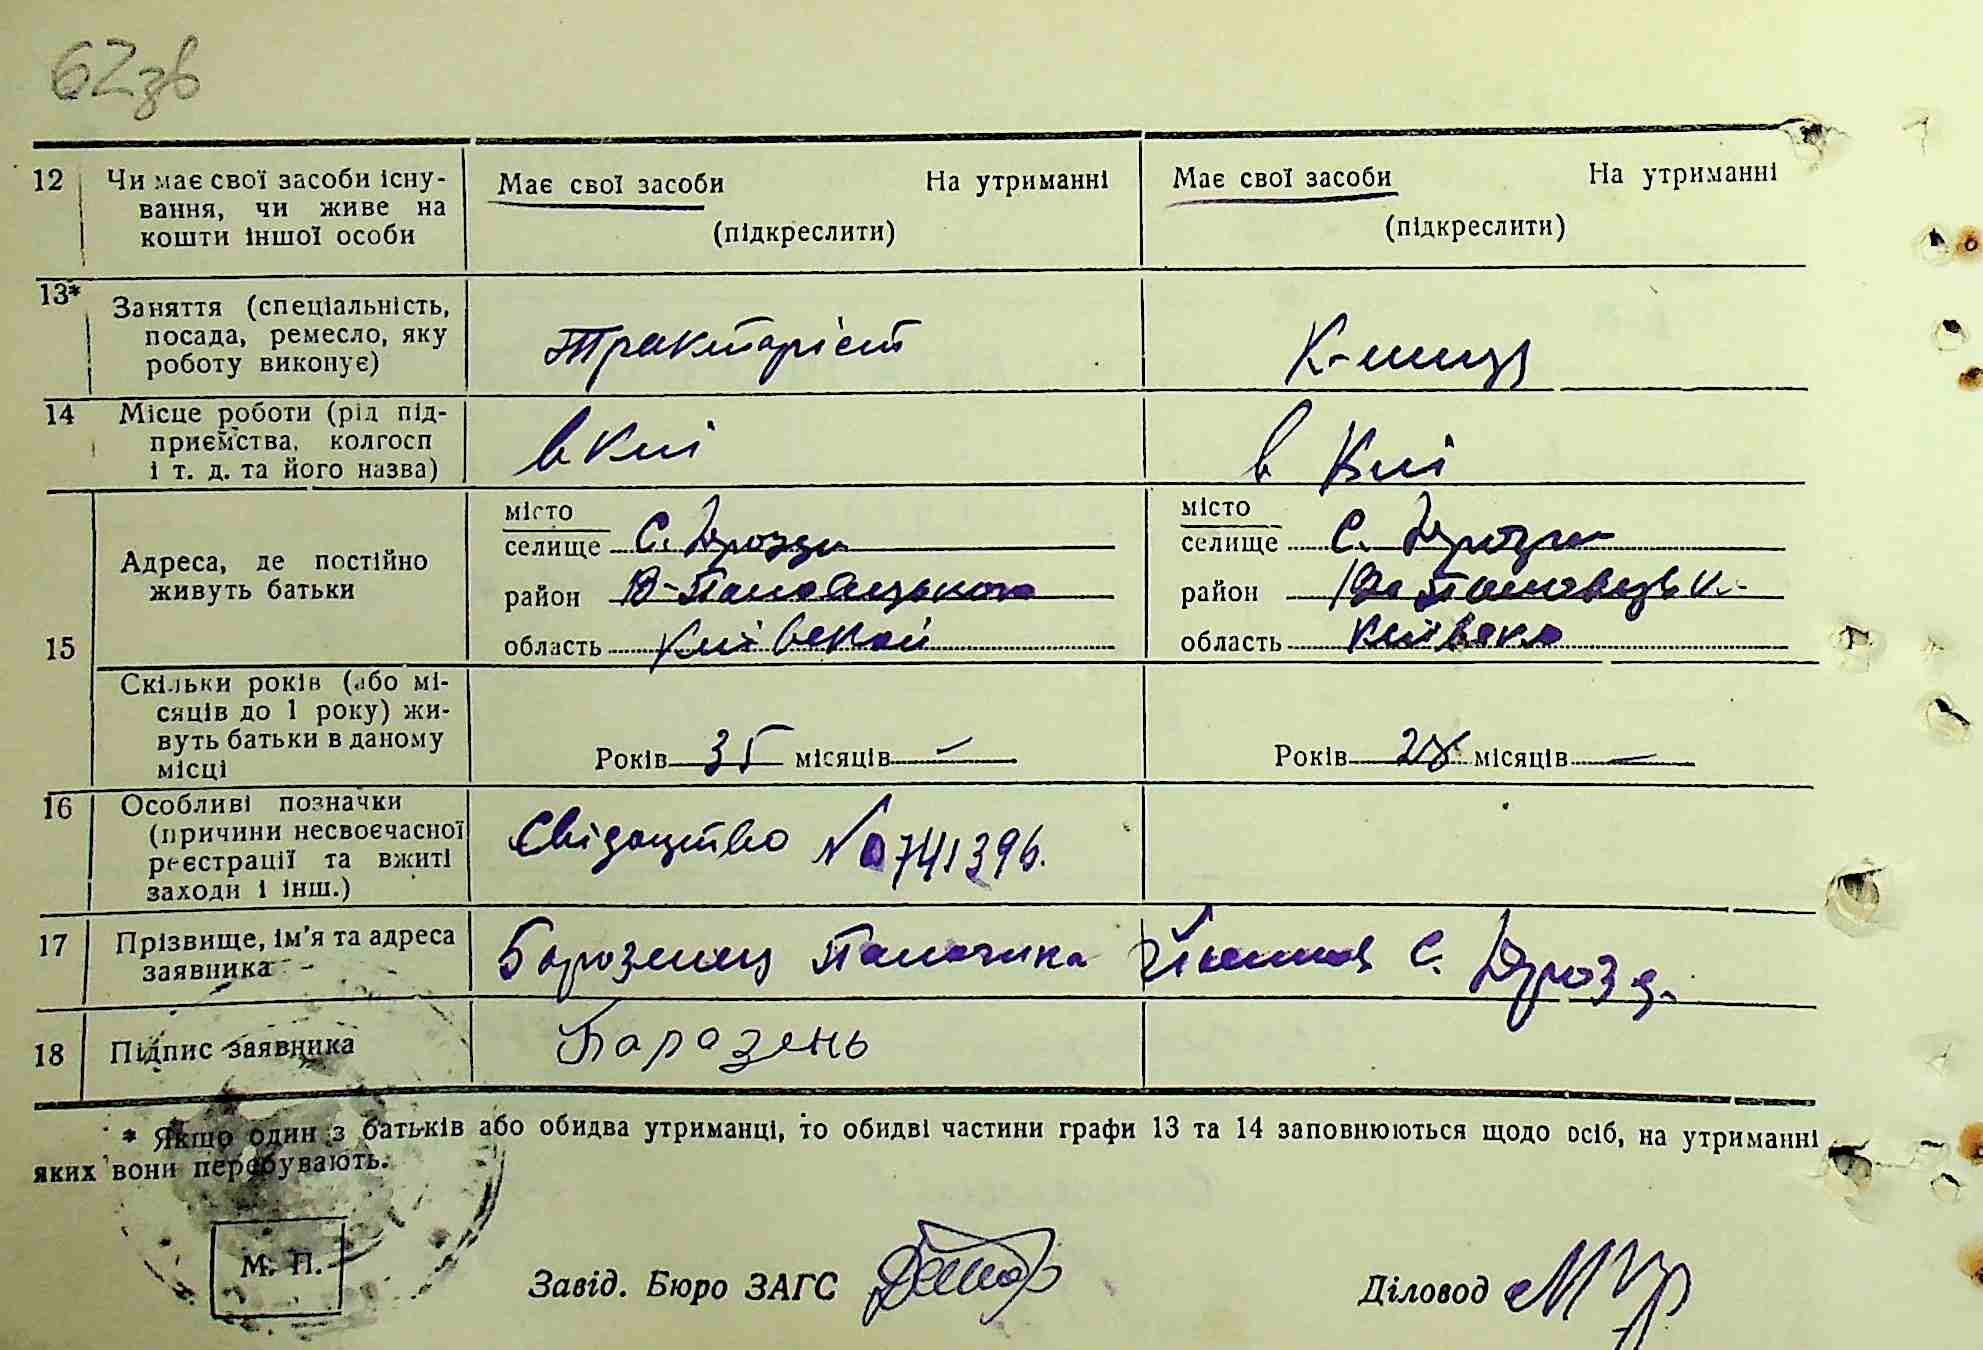 62зв
12 Чи має свої засоби існу- Має свої засоби На утриманні Має свої засоби На утриманні
вання, чи живе на
кошти іншої особи (підкреслити) (підкреслити)
13* Заняття (спеціальність,
посада, ремесло, яку Тракторіст
роботу виконує)
14 Місце роботи (рід під-
приємства, колгосп в в
і т. д. та його назва)
15 Адреса, де постійно живуть батьки
місто місто
селище С. Дрозди селище С. Дрозди
район район
область область
Скільки років (або мі-
сяців до 1 року) жи-
вуть батьки в даному Років 35 місяців – Років 28 місяців –
місці
16 Особливі позначки
(причини несвоєчасної Свідоцтво №
реєстрації та вжиті
заходи і інш.)
17 Прізвище, ім'я та адреса Борозенец С. Дрозд
заявника
18 Підпис заявника Баразень
* Якщо один з батьків або обидва утриманці, то обидві частини графи 13 та 14 заповнюються щодо осіб, на утриманні
яких вони перебувають.
М. П. Завід. Бюро ЗАГС Діловод